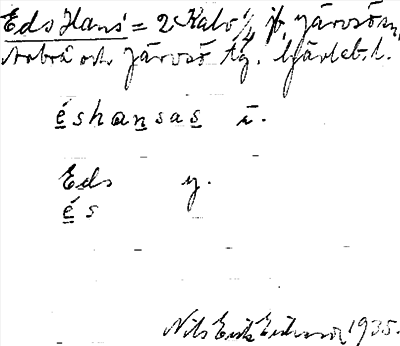 Eds Hans' = 2 Kalv 1/4 jf, Järvsö sn,
Arbrå och Järvsö tg. Gävleb. l.
éshansas i.
Eds y.
és
Nils Erik 1935.